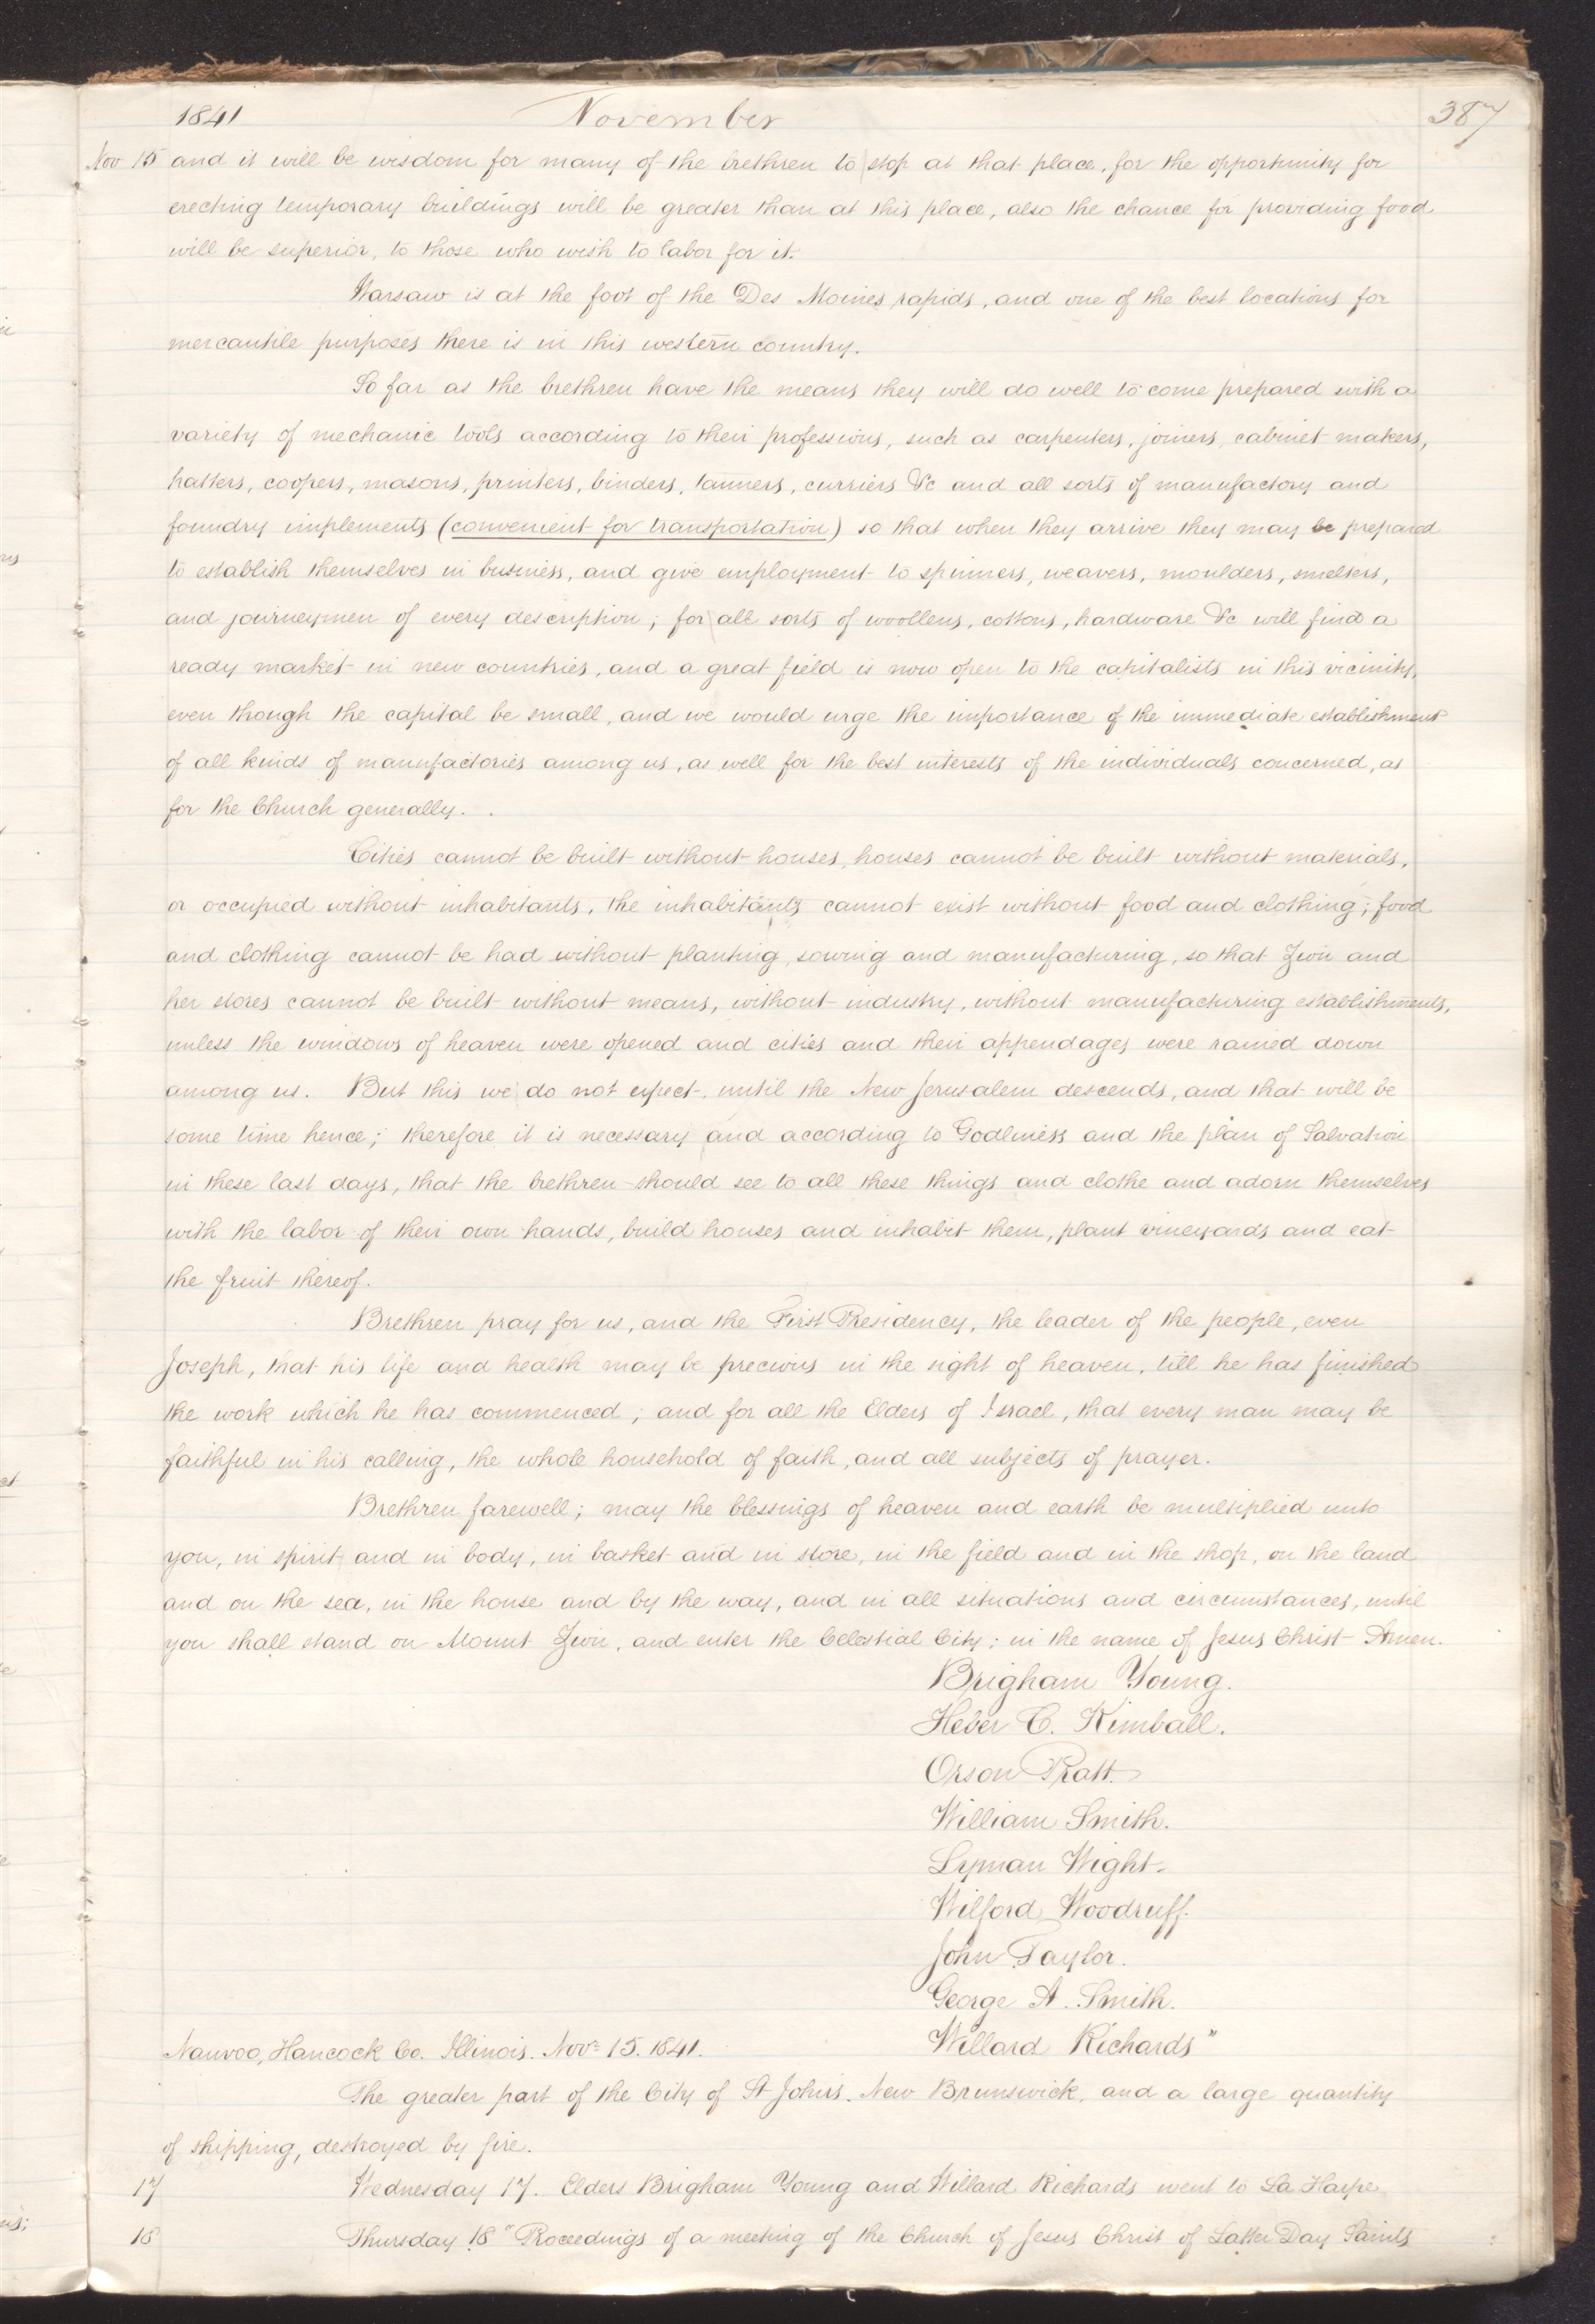 1841 November 387
Nov 15 and it will be wisdom for many of the brethren to stop at that place, for the opportunity for
erecting temporary buildings will be greater than at this place, also the chance for providing food
will be superior, to those who wish to labor for it.
Warsaw is at the foot of the Des Moines rapids, and one of the best locations for
mercantile purposes there is in this western country.
So far as the brethren have the means they will do well to come prepared with a
variety of mechanic tools according to their professions, such as carpenters, joiners, cabinet makers,
hatters, coopers, masons, printers, binders, tanners, curriers &c and all sorts of manufactory and
foundry implements (convenient for transportation) so that when they arrive they may be prepared
to establish themselves in business, and give employment to spinners, weavers, moulders, smelters,
and journeymen of every description; for all sorts of woollens, cottons, hardware &c will find a
ready market in new countries, and a great field is now open to the capitalists in this vicinity,
even though the capital be small, and we would urge the importance of the immediate establishment
of all kinds of manufactories among us, as well for the best interests of the individuals concerned, as
for the Church generally.
Cities cannot be built without houses, houses cannot be built without materials,
or occupied without inhabitants, the inhabitants cannot exist without food and clothing; food
and clothing cannot be had without planting, sowing and manufacturing, so that Zion and
her stores cannot be built without means, without industry, without manufacturing establishments,
unless the windows of heaven were opened and cities and their appendages were rained down
among us. But this we do not expect, until the New Jerusalem descends, and that will be
some time hence; therefore it is necessary and according to Godliness and the plan of Salvation
in these last days, that the brethren should see to all these things and clothe and adorn themselves
with the labor of their own hands, build houses and inhabit them, plant vineyards and eat
the fruit thereof.
Brethren pray for us, and the First Presidency, the leader of the people, even
Joseph, that his life and health may be precious in the sight of heaven, till he has finished
the work which he has commenced; and for all the Elders of Israel, that every man may be
faithful in his calling, the whole household of faith, and all subjects of prayer.
Brethren farewell; may the blessings of heaven and earth be multiplied unto
you, in spirit and in body, in basket and in store, in the field and in the shop, on the land
and on the sea, in the house and by the way, and in all situations and circumstances, until
you shall stand on Mount Zion, and enter the Celestial City; in the name of Jesus Christ Amen.
Brigham Young.
Heber C. Kimball.
Orson Pratt.
William Smith.
Lyman Wight.
Wilford Woodruff.
John Taylor.
George A. Smith.
Nauvoo, Hancock Co. Illinois. Novr 15. 1841. Willard Richards"
The greater part of the City of St John's. New Brunswick, and a large quantity
of shipping, destroyed by fire.
17 Wednesday 17. Elders Brigham Young and Willard Richards went to La Harpe
18 Thursday 18 "Proceedings of a meeting of the Church of Jesus Christ of Latter Day Saints